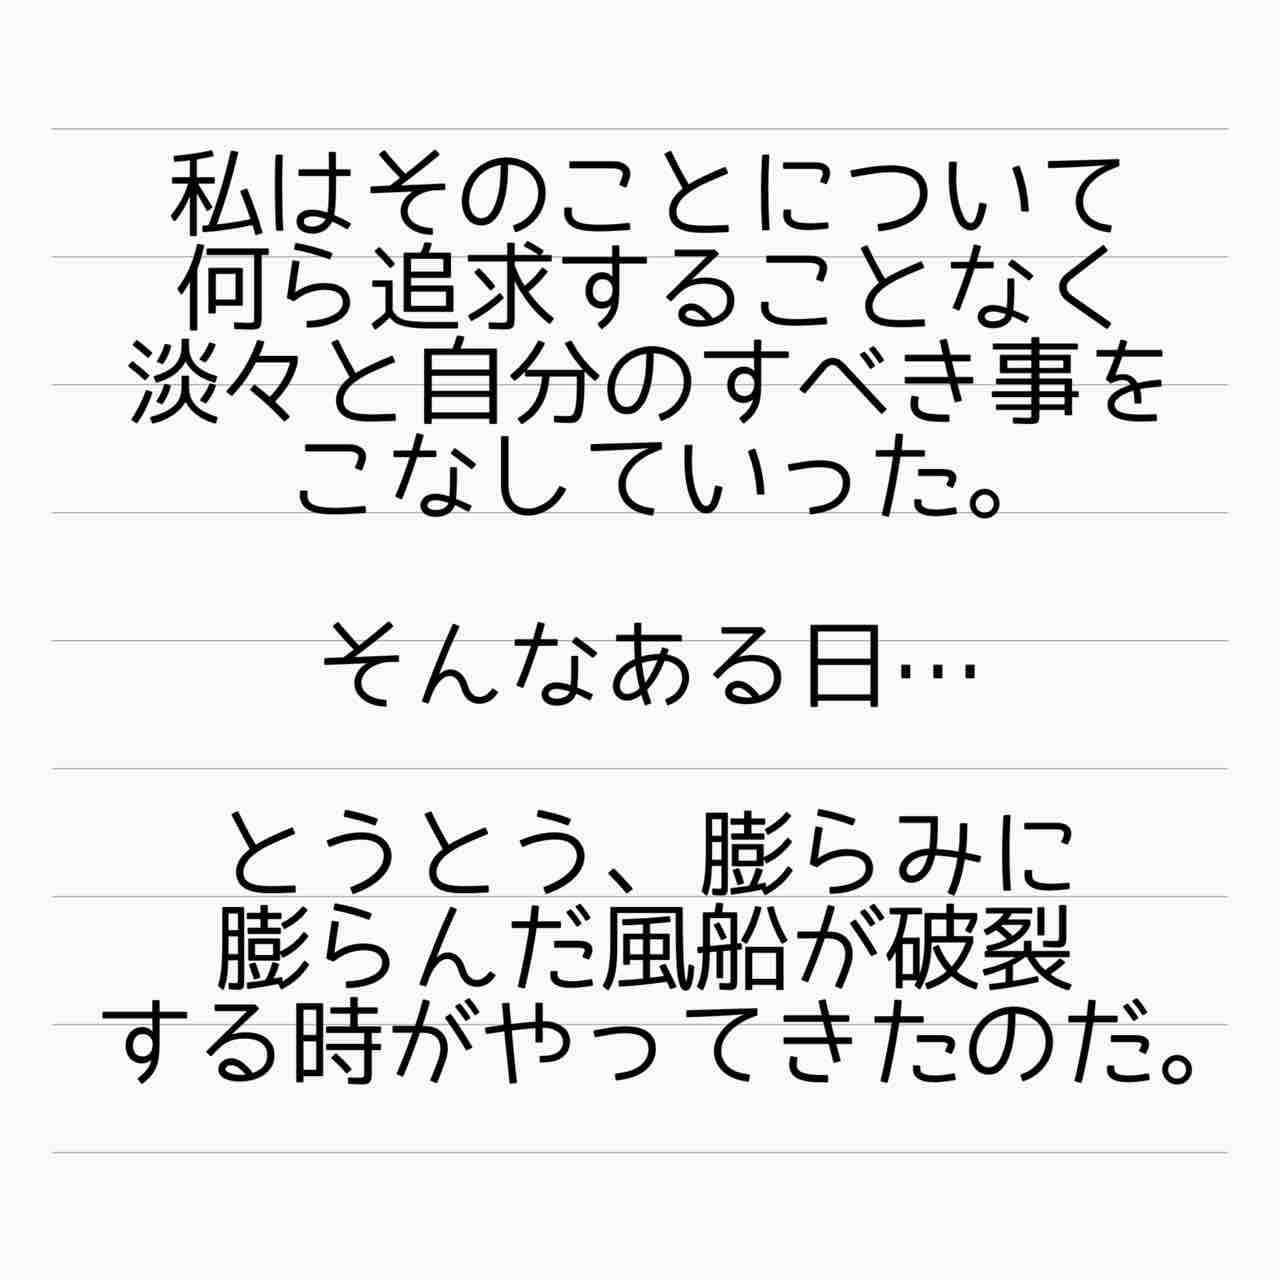 私はそのことについて
何ら追求することなく
淡々と自分のすべき事を
こなしていった。
そんなある日…
とうとう、膨らみに
膨らんだ風船が破裂
する時がやってきたのだ。